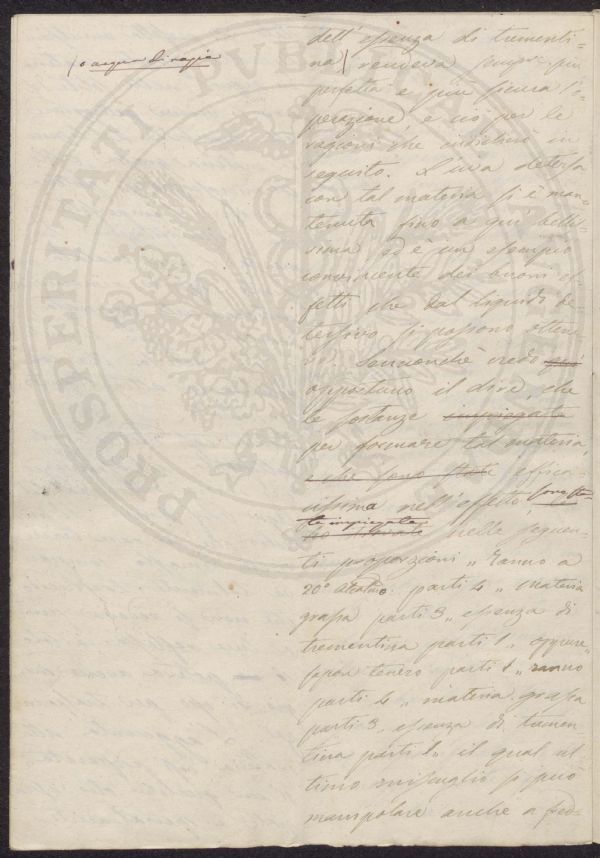 dell'essenza di trementi=
/o acqua di ragia
na)/ rendeva sempre più
perfetta e più sicura l'o=
perazione, e ciò per le
ragioni che indicherò in
seguito. L'uva detersa
con tal materia si è man=
tenuta fino a qui bellis=
sima ed è un esempio
convincente dei buoni ef=
fetti che dal liquido de=
tersivo si possono ottene=
re. Sennonché credo quì
opportuno il dire, che
le sostanze impiegate
per formare tal materia,
e che sono state effica=
cissima nell'effetto, sono sta=
te impiegate
nelle seguen=
ti proporzioni „ Ranno a
20° parti 4 „ materia
grassa parti 3 „ essenza di
trementina parti 1 „ oppure „
sapon tenero parti 1 „ ranno
parti 4 „ materia grassa
parti 3 „ essenza di tremen=
tina parti 1 „ il qual ul=
timo miscuglio si può
manipolare anche a fred=
PROSPERITATI PVBLICAE AVGENDAE